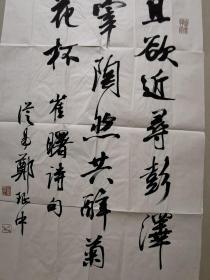 且欲近尋彭澤
宰陶然共醉菊
花杯 崔曙詩句
鄭珽中